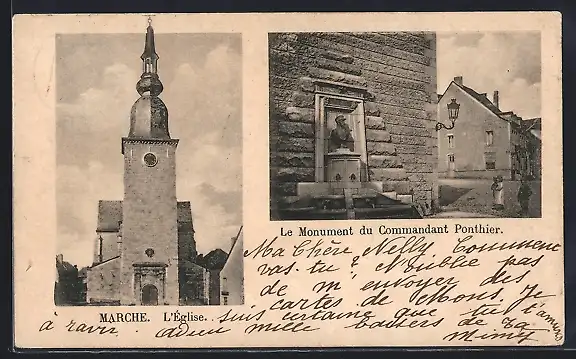 Le Monument du Commandant Ponthier.
MARCHE. L'Église.
Ma Chère Nelly Comment
vas-tu? N'oublie pas
de m'envoyer des
cartes de Mons. Je
suis certaine que tu t'amuses
à ravir. adieu mille baisers de ta
Mimi